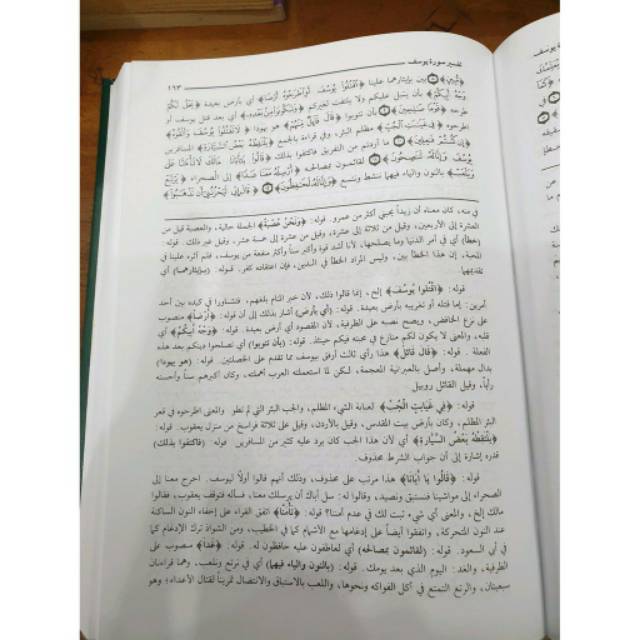 تفسير سورة يوسف
١٦٣
﴿مُّبِينٍ﴾ بيّن بإيثارهما علينا ﴿اقْتُلُوا يُوسُفَ أَوِ اطْرَحُوهُ أَرْضًا﴾ أي بأرض بعيدة ﴿يَخْلُ لَكُمْ
وَجْهُ أَبِيكُمْ﴾ بأن يقبل عليكم ولا يلتفت لغيركم ﴿وَتَكُونُوا مِنْ بَعْدِهِ﴾ أي بعد قتل يوسف أو
طرحه ﴿قَوْمًا صَالِحِينَ﴾ بأن تتوبوا ﴿قَالَ قَائِلٌ مِنْهُمْ﴾ هو يهودا ﴿لَا تَقْتُلُوا يُوسُفَ وَأَلْقُوهُ﴾
اطرحوه ﴿فِي غَيَابَتِ الْجُبِّ﴾ مظلم البئر، وفي قراءة بالجمع ﴿يَلْتَقِطْهُ بَعْضُ السَّيَّارَةِ﴾ المسافرين
﴿إِنْ كُنْتُمْ فَاعِلِينَ﴾ ما أردتم من التفريق فاكتفوا بذلك ﴿قَالُوا يَا أَبَانَا مَالَكَ لَا تَأْمَنَّا عَلَى
يُوسُفَ وَإِنَّا لَهُ لَنَاصِحُونَ﴾ لقائمون بمصالحه ﴿أَرْسِلْهُ مَعَنَا غَدًا﴾ إلى الصحراء ﴿يَرْتَعْ
وَيَلْعَبْ﴾ بالنون والياء فيهما ننشط ونتسع ﴿وَإِنَّا لَهُ لَحَافِظُونَ﴾ ﴿قَالَ إِنِّي لَيَحْزُنُنِي أَنْ تَذْهَبُوا﴾
في منه، كان معناه أن زيداً يحبني أكثر من عمرو. قوله: ﴿وَنَحْنُ عُصْبَةٌ﴾ الجملة حالية، والعصبة قيل من
العشرة إلى الأربعين، وقيل من ثلاثة إلى عشرة، وقيل من عشرة إلى خمسة عشر، وقيل غير ذلك. قوله:
(خطأ) أي في أمر الدنيا وما يصلحها، لأنا أشد قوة وأكثر سناً وأكثر منفعة من يوسف، فلم آثره علينا في
المحبة، إن هذا الخطأ بين، وليس المراد الخطأ في الدين، فإن اعتقاده كفر. قوله: (بإيثارهما) أي
تقديمهما.
قوله: ﴿اقْتُلُوا يُوسُفَ﴾ إلخ، إنما قالوا ذلك، لأن خبر المنام بلغهم، فتشاوروا في كيده بين أحد
أمرين: إما قتله أو تغريبه بأرض بعيدة. قوله: (أي بأرض) أشار بذلك إلى أن قوله: ﴿أَرْضًا﴾ منصوب
على نزع الخافض، ويصح نصبه على الظرفية، لأن المقصود أي أرض بعيدة. قوله: ﴿وَجْهُ أَبِيكُمْ﴾ أي
قلبه، والمعنى لا يكون لكم منازع في محبته فيكم حينئذ. قوله: (بأن تتوبوا) أي تصلحوا دينكم بعد هذه
الفعلة. قوله: ﴿قَالَ قَائِلٌ﴾ هذا رأي ثالث أرفق بيوسف مما تقدم على الخصلتين. قوله: (هو يهودا)
بدال مهملة، وأصل بالعبرانية المعجمة، لكن لما استعملته العرب أهملته، وكان أكبرهم سناً وأحسنه
رأياً، وقيل القائل روبيل.
قوله: ﴿فِي غَيَابَتِ الْجُبِّ﴾ الغيابة الشيء المظلم، والجب البئر التي لم تطو. والمعنى اطرحوه في قعر
البئر المظلم، وكان بأرض بيت المقدس، وقيل بالأردن، وقيل على ثلاثة فراسخ من منزل يعقوب. قوله:
﴿يَلْتَقِطْهُ بَعْضُ السَّيَّارَةِ﴾ أي لأن هذا الجب كان يرد عليه كثير من المسافرين. قوله: (فاكتفوا بذلك)
قدره إشارة إلى أن جواب الشرط محذوف.
قوله: ﴿قَالُوا يَا أَبَانَا﴾ هذا مرتب على محذوف، وذلك أنهم قالوا أولاً ليوسف. اخرج معنا إلى
الصحراء إلى مواشينا فنستبق ونصيد، وقالوا له: سل أباك أن يرسلك معنا، فسأله فتوقف يعقوب، فقالوا
مالك إلخ، والمعنى أي شيء ثبت لك في عدم أمننا؟ قوله: ﴿تَأْمَنَّا﴾ اتفق القراء على إخفاء النون الساكنة
عند النون المتحركة، واتفقوا أيضاً على إدغامها مع الإشمام كما في الخطيب، ومن الشواذ ترك الإدغام كما
في أبي السعود. قوله: (لقائمون بمصالحه) أي لعاطفون عليه حافظون له. قوله: ﴿غَداً﴾ منصوب على
الظرفية، والغد: اليوم الذي بعد يومك. قوله: (بالنون والياء فيهما) أي في نرتع ونلعب، وهما قراءتان
سبعيتان، والرتع التمتع في أكل الفواكه ونحوها، واللعب بالاستباق والانتضال تمريناً لقتال الأعداء؛ وهو